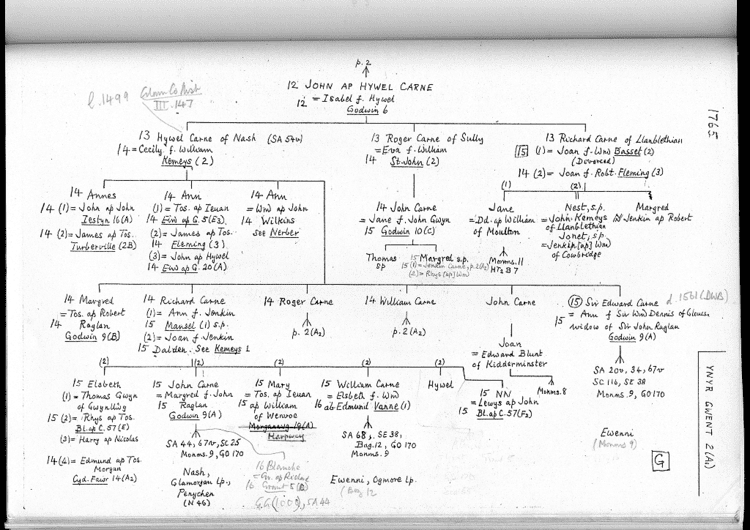 p. 2
12 JOHN AP HYWEL CARNE
12 = Isabel f. Hywel
Godwin 6
l. 1499
Glam. Co. Hist
III. 147
1765
13 Hywel Carne of Nash (SA 54v)
14 = Cecily f. William
Kemeys (2)
13 Roger Carne of Sully
= Eva f. William
14 St. John (2)
13 Richard Carne of Llanblethian
15 (1) = Joan f. Wm Basset (2)
(Divorced)
14 (2) = Joan f. Robt. Fleming (3)
(1)
(2)
14 Annes
14 (1) = John ap John
Iestyn 16 (A)
14 (2) = James ap Tos.
Turberville (2B)
14 Ann
(1) = Tos. ap Ieuan
14 Ein ap G. 5 (E3)
(2) = James ap Tos.
14 Fleming (3)
(3) = John ap Jenkin
14 Ein ap G. 20 (A)
14 Ann
= Wm ap John
14 Wilkins
see Nerber
14 John Carne
= Jane f. John Gwyn
15 Godwin 10 (C)
Thomas
sp
15 Margred s.p.
15 (1) = Jenkin Carne, p. 2 (A2)
(2) = Rhys [ap] Wm
Jane
= Dd. ap William
of Moulton
Monms. 11
HT2 B7
Nest, s.p.
= John Kemeys
of Llanblethian
Jonet, s.p.
= Jenkin [ap] Wm
of Cowbridge
Margred
= Jenkin ap Robert
14 Margred
= Tos. ap Robert
14 Raglan
Godwin 9 (B)
14 Richard Carne
15 (1) = Ann f. Jenkin
Mansel (1) s.p.
(2) = Joan f. Jenkin
15 Dalden. See Kemeys 1
14 Roger Carne
p. 2 (A2)
14 William Carne
p. 2 (A2)
John Carne
Joan
= Edward Blunt
of Kidderminster
Monms. 8
15 Sir Edward Carne d. 1561 (DWB)
15 = Ann f Sir Wm Dennis of Glouces
widow of Sir John Raglan
Godwin 9 (A)
SA 20v, 34, 67v
SC 116, SE 38
Monms. 9, GO 170
Ewenni
(Monms 9)
(2)
(2)
(2)
(2)
(2)
15 Elsbeth
(1) = Thomas Gwyn
of Gwynllwg
15 (2) = Rhys ap Tos.
Bl. ap C. 57 (E)
(3) = Harry ap Nicolas
14 (4) = Edmund ap Tos.
Morgan
Cyd. Fawr 14 (A2)
15 John Carne
= Margred f. John
15 Raglan
Godwin 9 (A)
SA 44, 67v, SC 25
Monms. 9, GO 170
Nash,
Glamorgan Lp.,
Penychen
(N 46)
15 Mary
= Tos. ap Ieuan
15 ap William
of Wenvoe
16 Blanche
16 Grant 5 (B)
SA 44
15 William Carne
= Elsbeth f. Wm
16 ab Edmund Vanne (1)
SA 68, SE 38,
Bag. 12, GO 170
Monms. 9
Ewenni, Ogmore Lp.
(Bag 12
Hywel
15 NN
= Lewys ap John
15 Bl. ap C. 57 (F2)
YNYR GWENT 2 (A1)
G